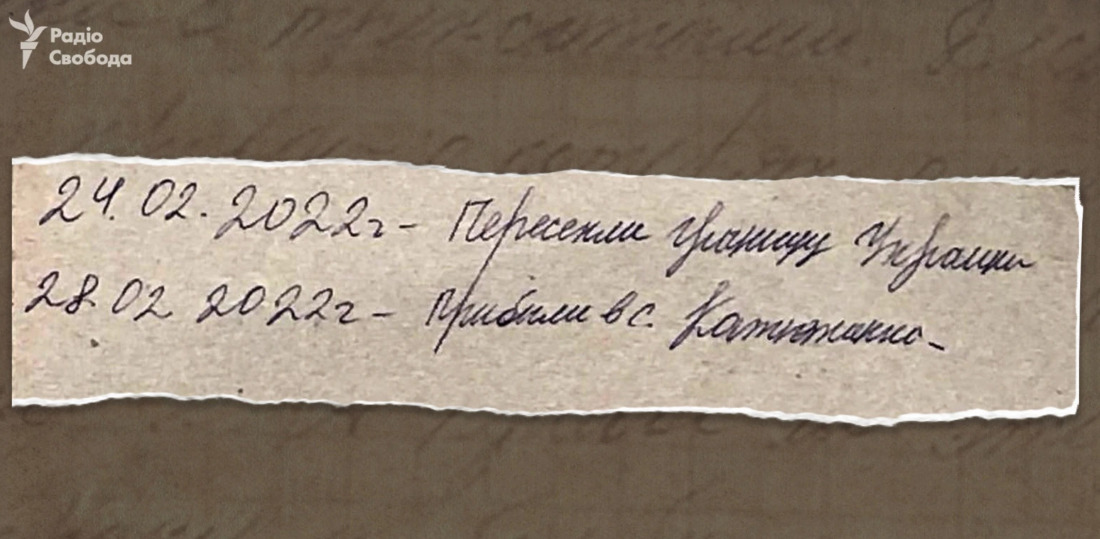 Радіо
Свобода
24.02.2022г – Пересекли границу Украины
28.02 2022г – Прибыли в с. Катюжанка